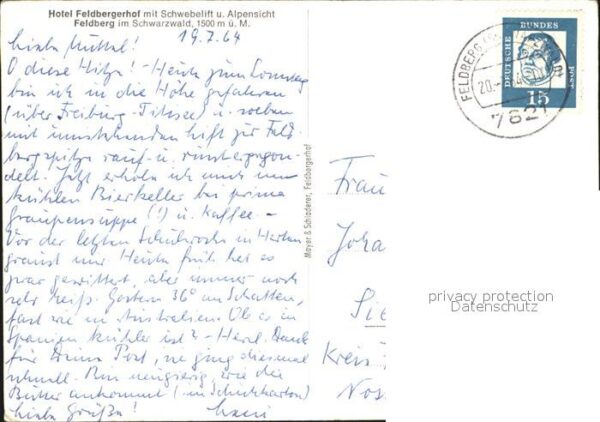 Hotel Feldbergerhof mit Schwebelift u. Alpensicht
Feldberg im Schwarzwald, 1500 m ü. M.
19.7.64
O diese Hitze! - Heute zum Sonntag
bin ich in die Höhe gefahren
(über Freiburg-Titisee) u. soeben
mit umstehendem Lift zur Feld-
bergspitze rauf- u. runtergegon-
delt. Jetzt erhole ich mich im
kühlen Bierkeller bei prima
Graupensuppe (!) u. Kaffee -
Vor der letzten Schulwoche in
graust mir. Heute früh hat es
zwar gewittert, aber immer noch
sehr heiß. Gestern 36° im Schatten,
fast wie in Australien. Ob es in
Spanien kühler ist? - Herzl. Dank
für Deine Post, ging diesmal
schnell. Bin neugierig, wie die
Bütter ankommt (im Schuhkarton)
Grüße!
Mayer & Schladerer, Feldbergerhof
DEUTSCHE BUNDESPOST
15
FELDBERG
20.
7821
Frau
Joha
Sie
Kreis
Nos
privacy protection
Datenschutz